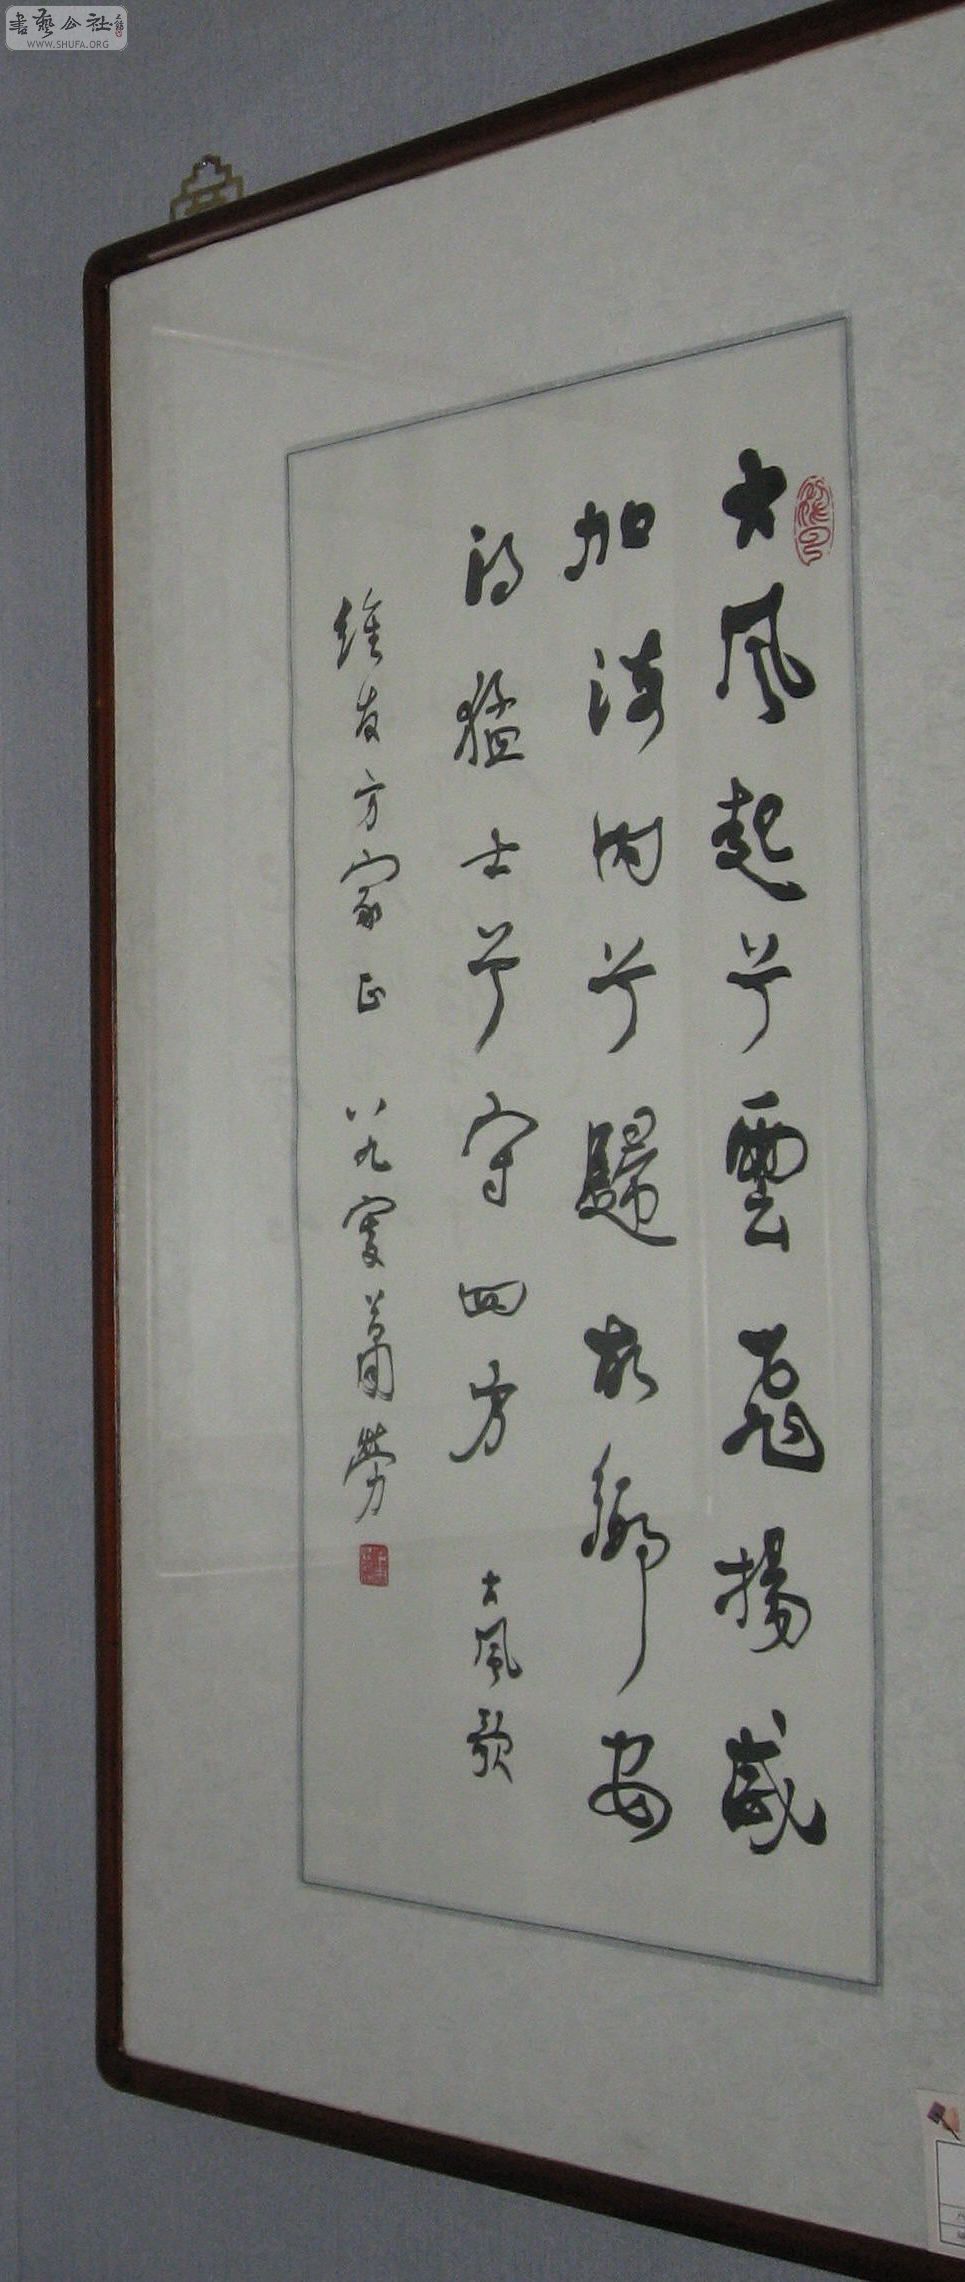 大風起兮雲飛揚威
加海内兮歸故鄉安
得猛士兮守四方 大風歌
維友方家正 八九叟蕭勞
書藝公社
WWW.SHUFA.ORG